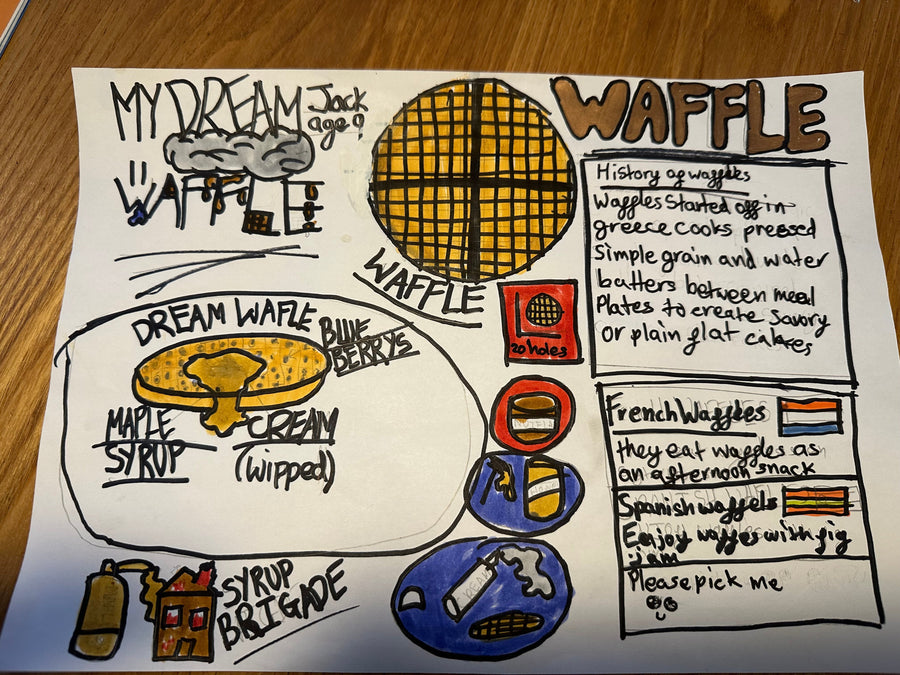 MY DREAM
WAFFLE
Jack
age 9
WAFFLE
WAFFLE
History of waffles
Waffles Started off in
greece cooks pressed
Simple grain and water
batters between meal
Plates to create savory
or plain flat cakes
20 holes
DREAM WAFLE
BLUE
BERRYS
MAPLE
SYRUP
CREAM
(wipped)
French Waffles
they eat waffles as
an afternoon snack
Spanish waffels
Enjoy waffles with fig
jam
Please pick me
SYRUP
BRIGADE